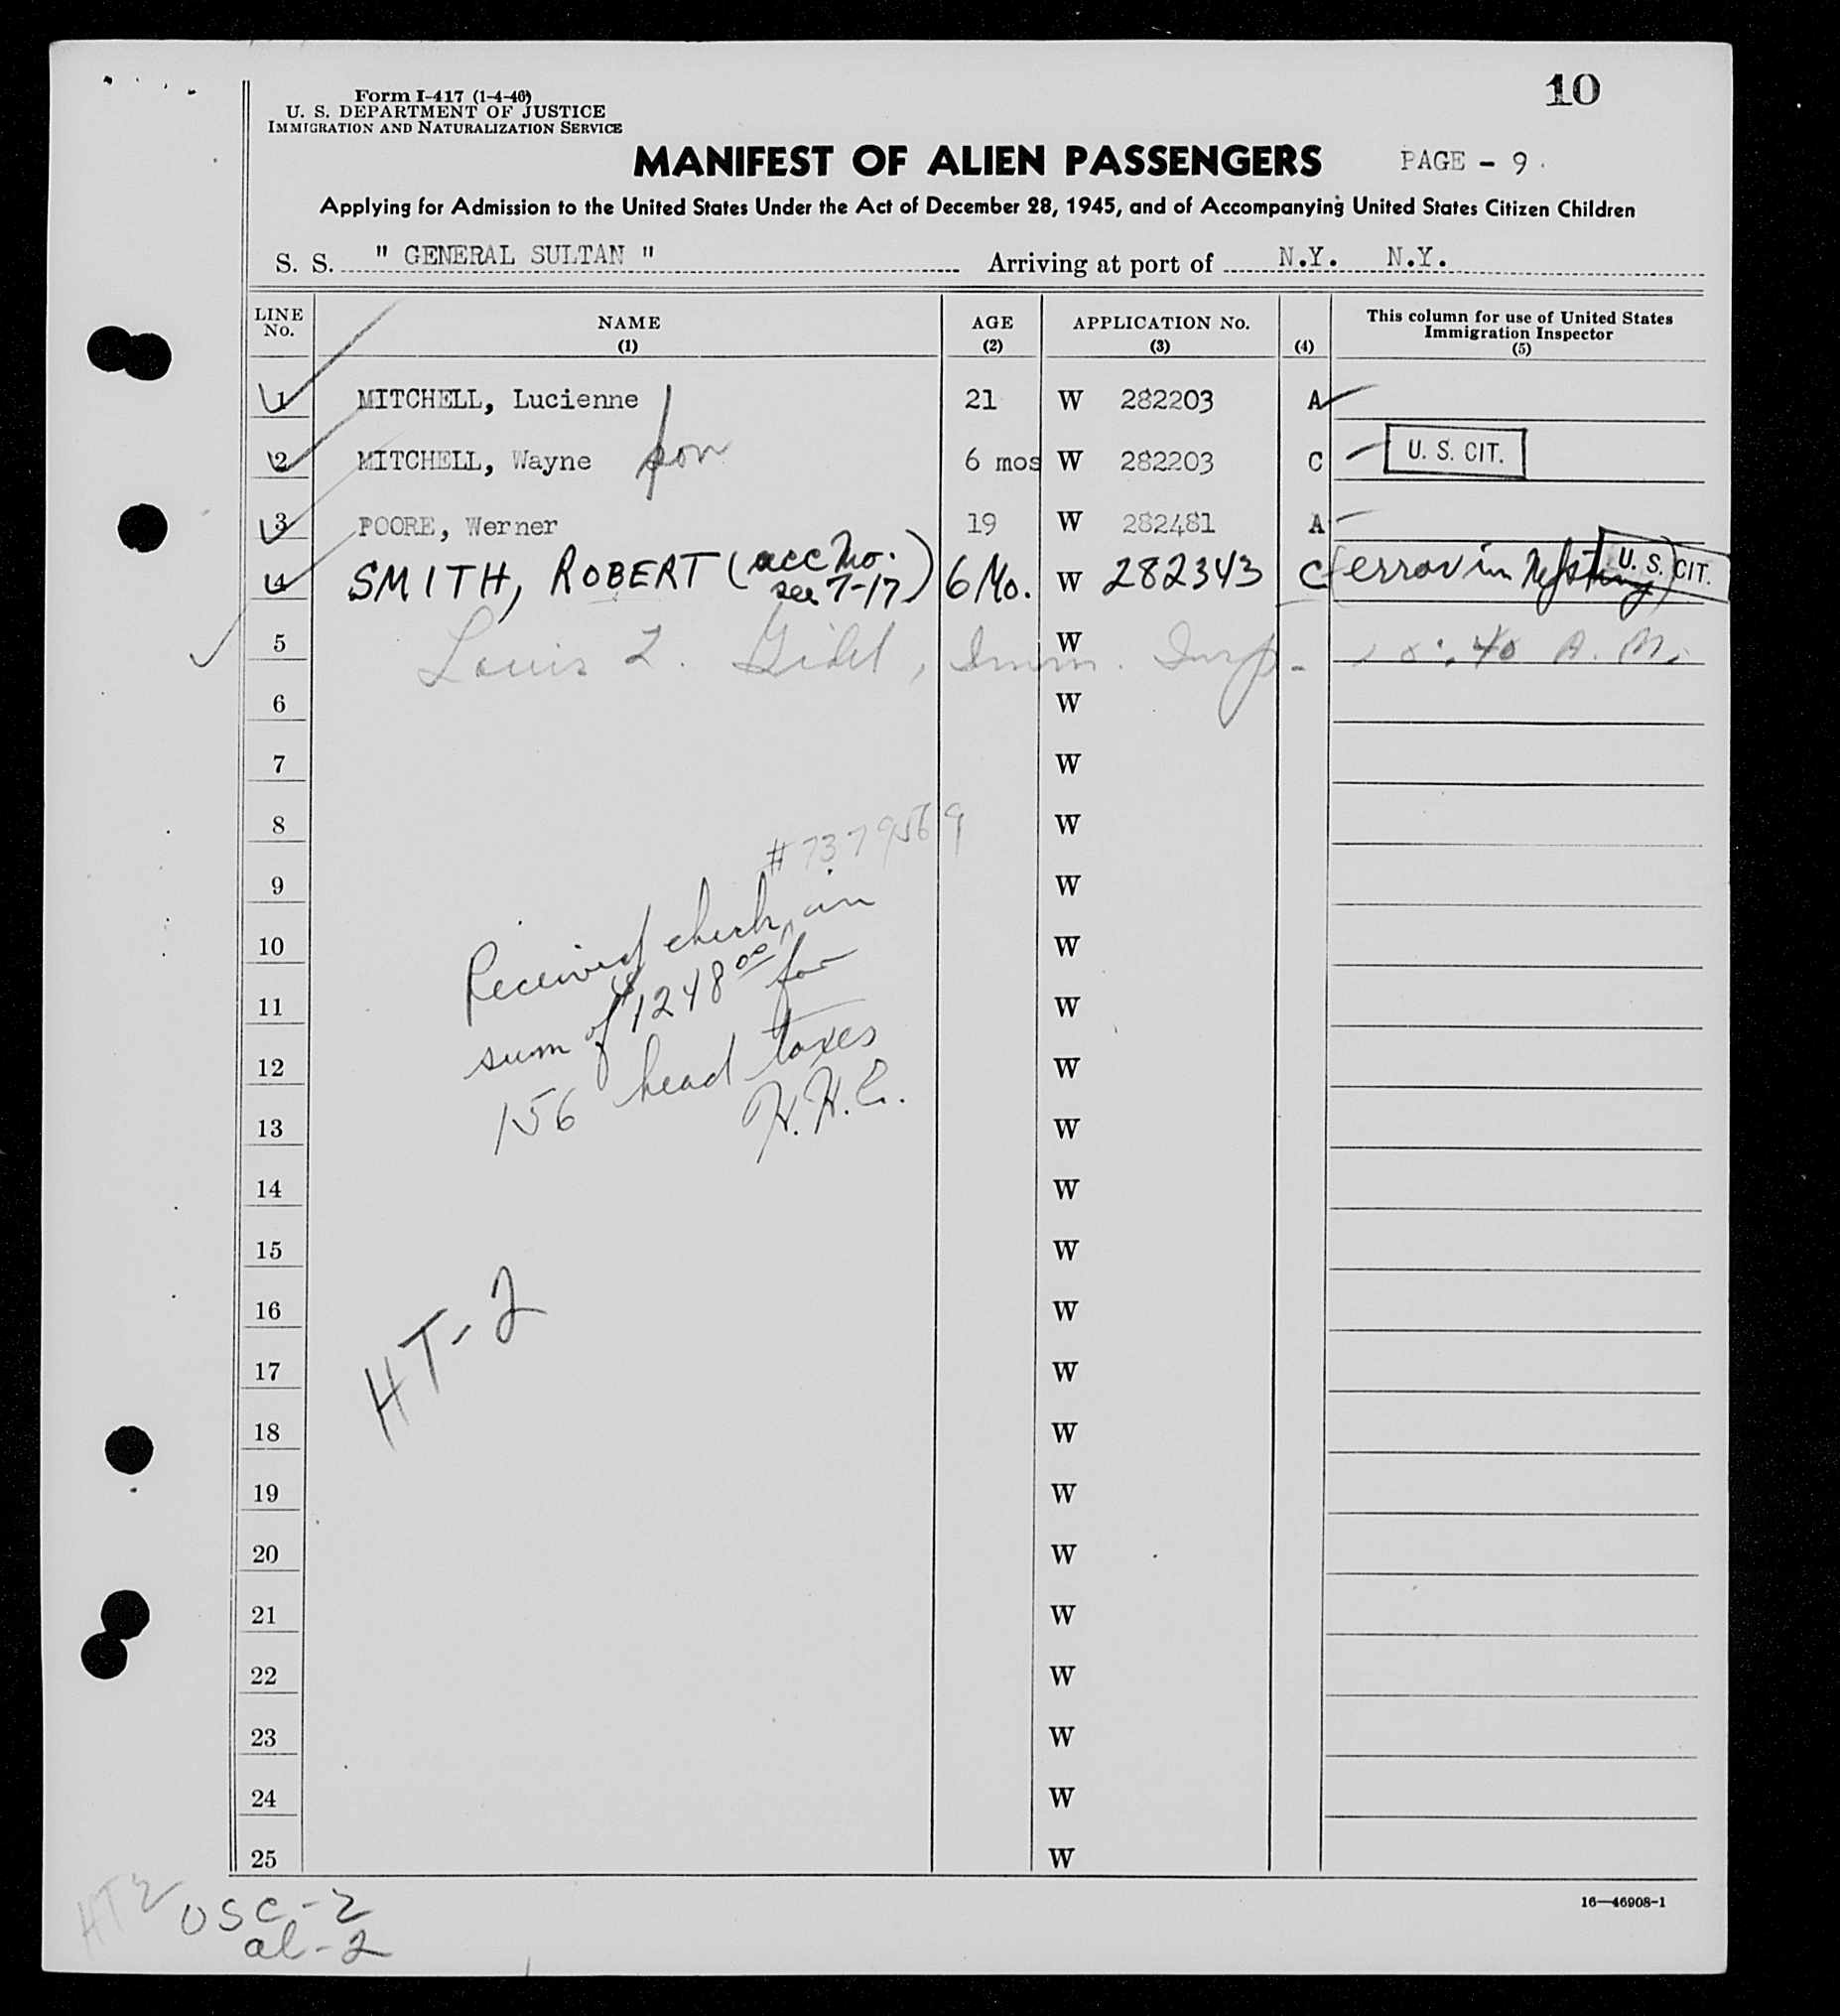 10
Form I-417 (1-4-46)
U. S. DEPARTMENT OF JUSTICE
IMMIGRATION AND NATURALIZATION SERVICE
MANIFEST OF ALIEN PASSENGERS PAGE - 9.
Applying for Admission to the United States Under the Act of December 28, 1945, and of Accompanying United States Citizen Children
S. S. " GENERAL SULTAN " Arriving at port of N.Y. N.Y.
LINE No. NAME (1) AGE (2) APPLICATION No. (3) (4) This column for use of United States Immigration Inspector (5)
1 MITCHELL, Lucienne 21 W 282203 A
2 MITCHELL, Wayne son 6 mos W 282203 C U. S. CIT.
3 POORE, Werner 19 W 282481 A
4 SMITH, ROBERT (acc Mo. see 7-17) 6 Mo. W 282343 C (error in U. S. CIT.
5 Louis Imm. Insp. W :40 A. M.
6 W
7 W
8 W
#7379569
9 W
Received check in
10 W
sum of $1248.00 for
11 W
12 W
156 head taxes
H.H.E.
13 W
14 W
15 W
16 W
HT-2
17 W
18 W
19 W
20 W
21 W
22 W
23 W
24 W
25 W
HT2 USC-2
al-2
16—46908-1